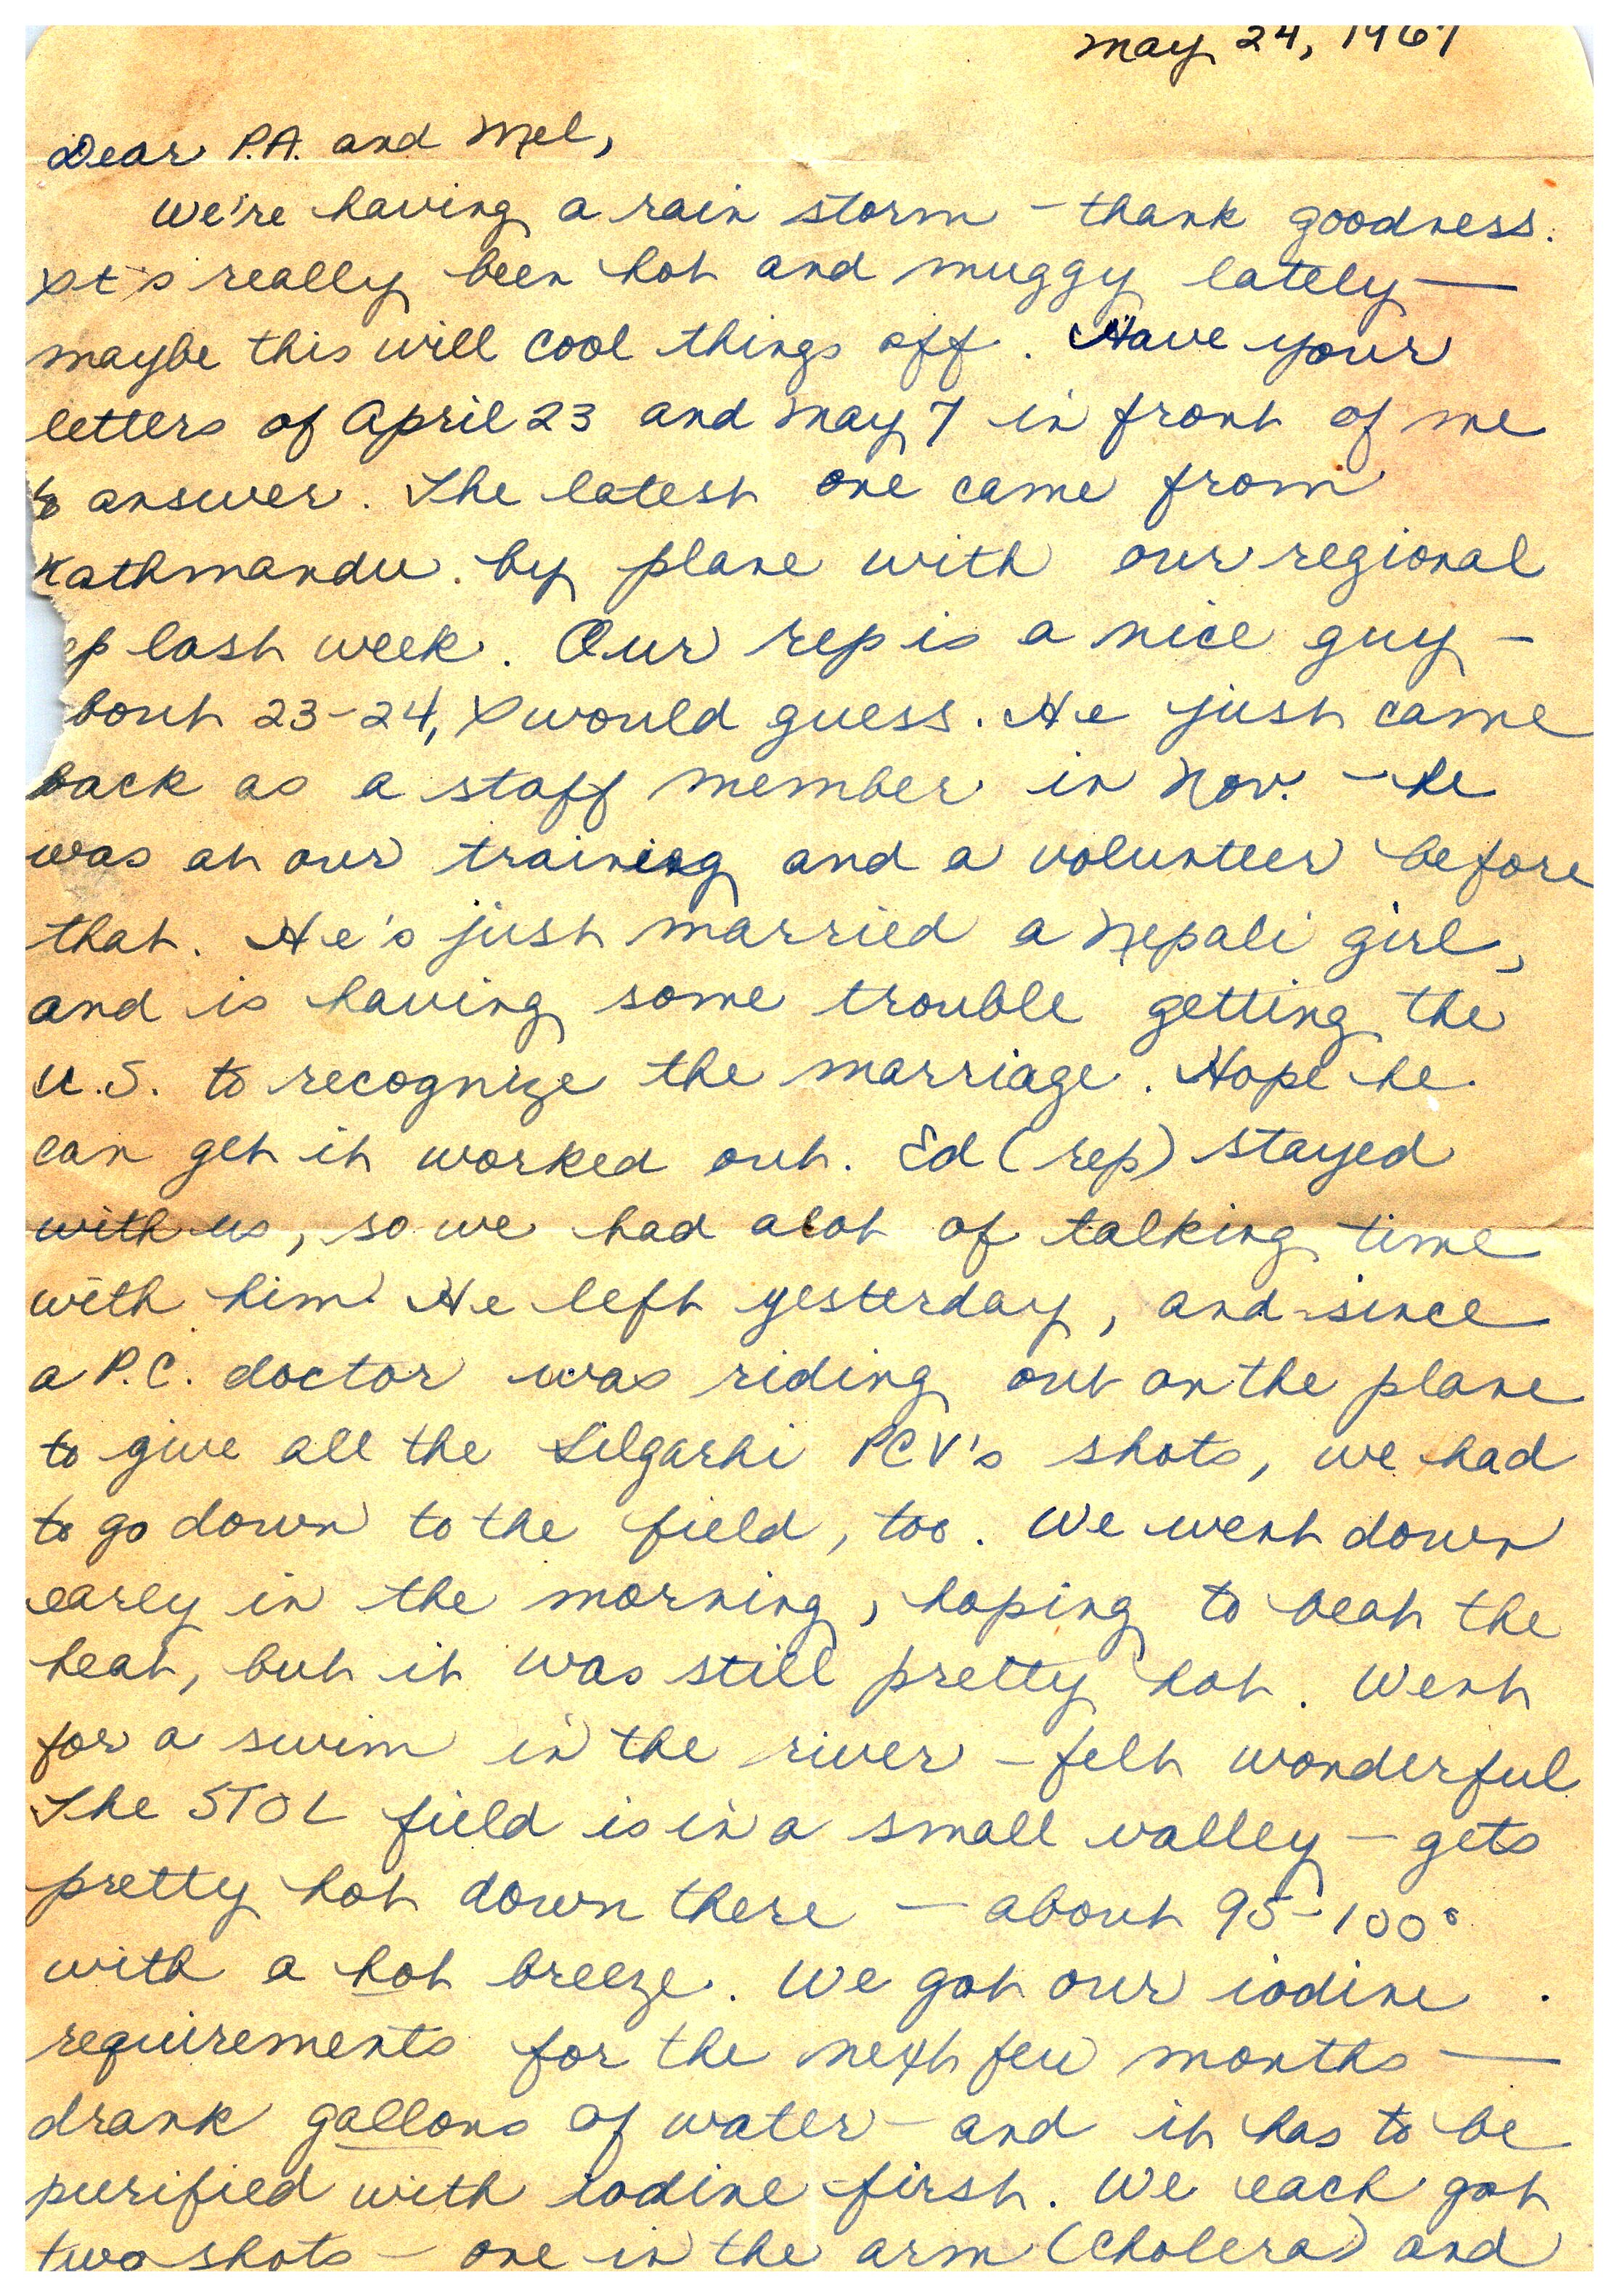 May 24, 1967
Dear P.A. and Mel,
We're having a rain storm - thank goodness.
It's really been hot and muggy lately —
maybe this will cool things off. Have your
letters of April 23 and May 7 in front of me
to answer. The latest one came from
Kathmandu. by plane with our regional
ep last week. Our rep is a nice guy -
bout 23-24, I would guess. He just came
back as a staff member in Nov. - he
was at our training and a volunteer before
that. He's just married a Nepali girl,
and is having some trouble getting the
U.S. to recognize the marriage. Hope he
can get it worked out. Ed (rep) stayed
with us, so we had alot of talking time
with him. He left yesterday, and since
a P.C. doctor was riding out on the plane
to give all the Silgarhi PCV's shots, we had
to go down to the field, too. We went down
early in the morning, hoping to beat the
heat, but it was still pretty hot. Went
for a swim in the river - felt wonderful
The STOL field is in a small valley - gets
pretty hot down there — about 95-100°
with a hot breeze. We got our iodine
requirements for the next few months —
drank gallons of water - and it has to be
purified with iodine first. We each got
two shots - one in the arm (Cholera) and